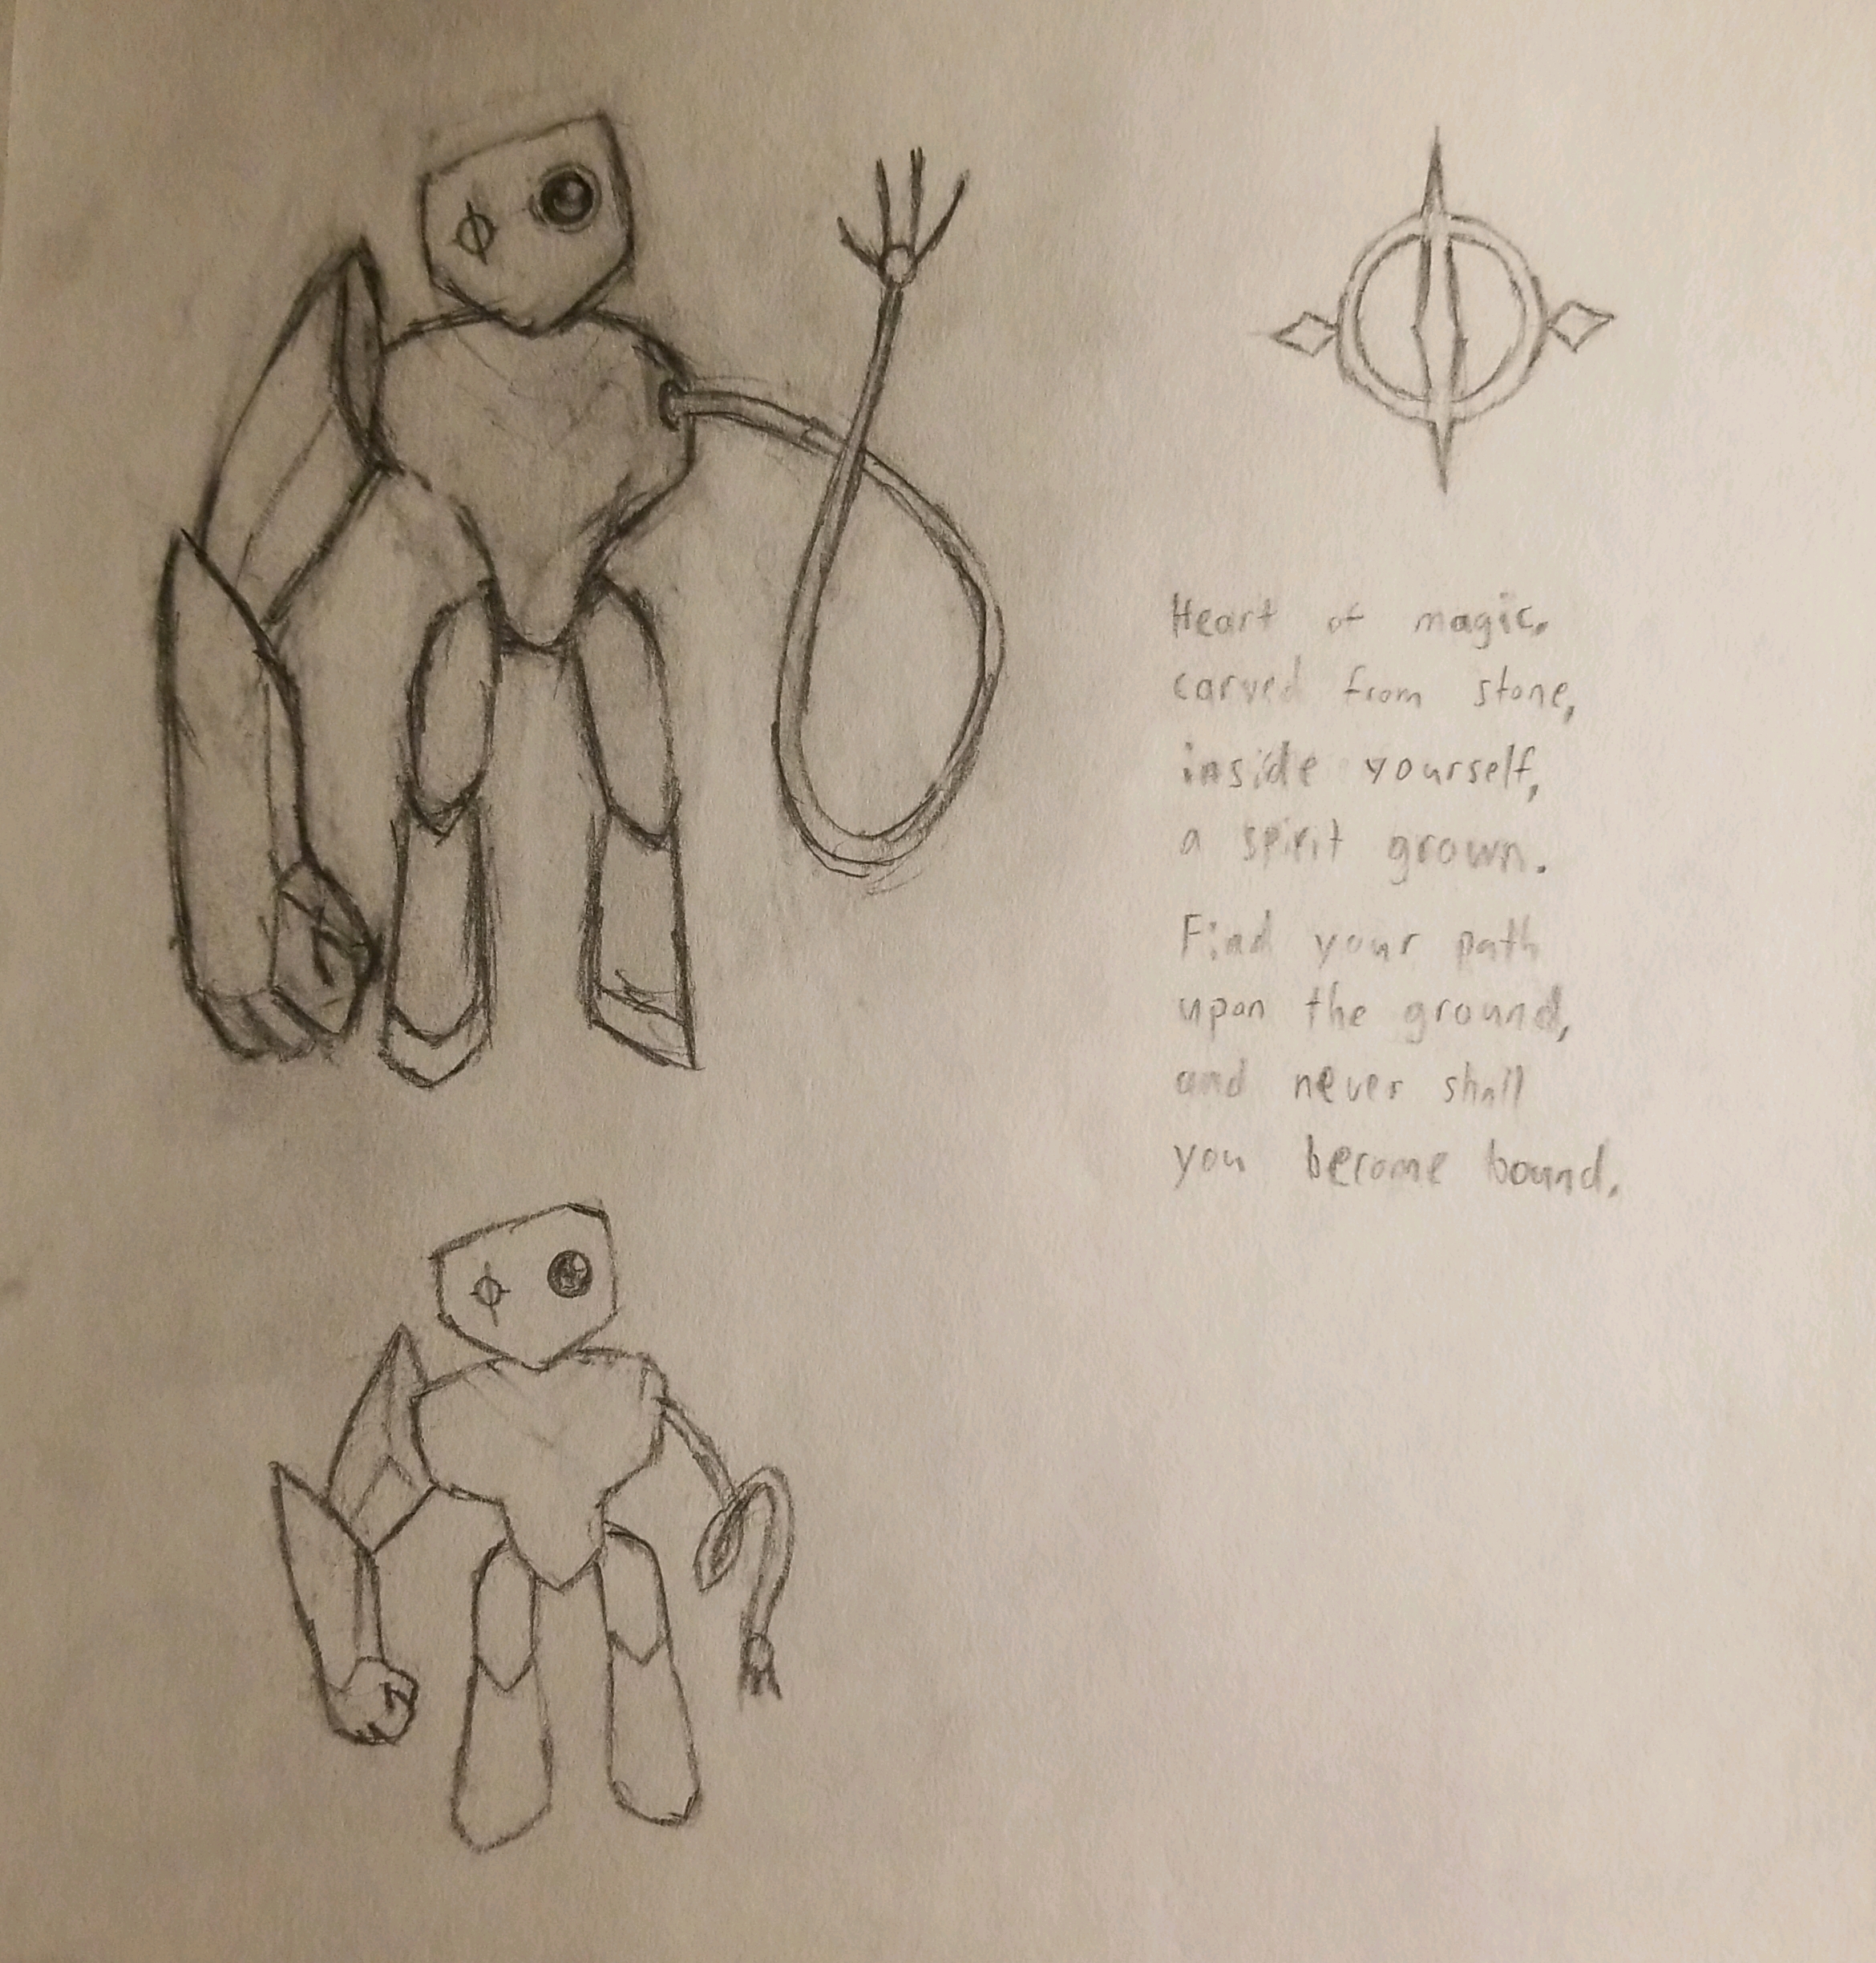 Heart of magic,
carved from stone,
inside yourself,
a spirit grown.
Find your path
upon the ground,
and never shall
you become bound.